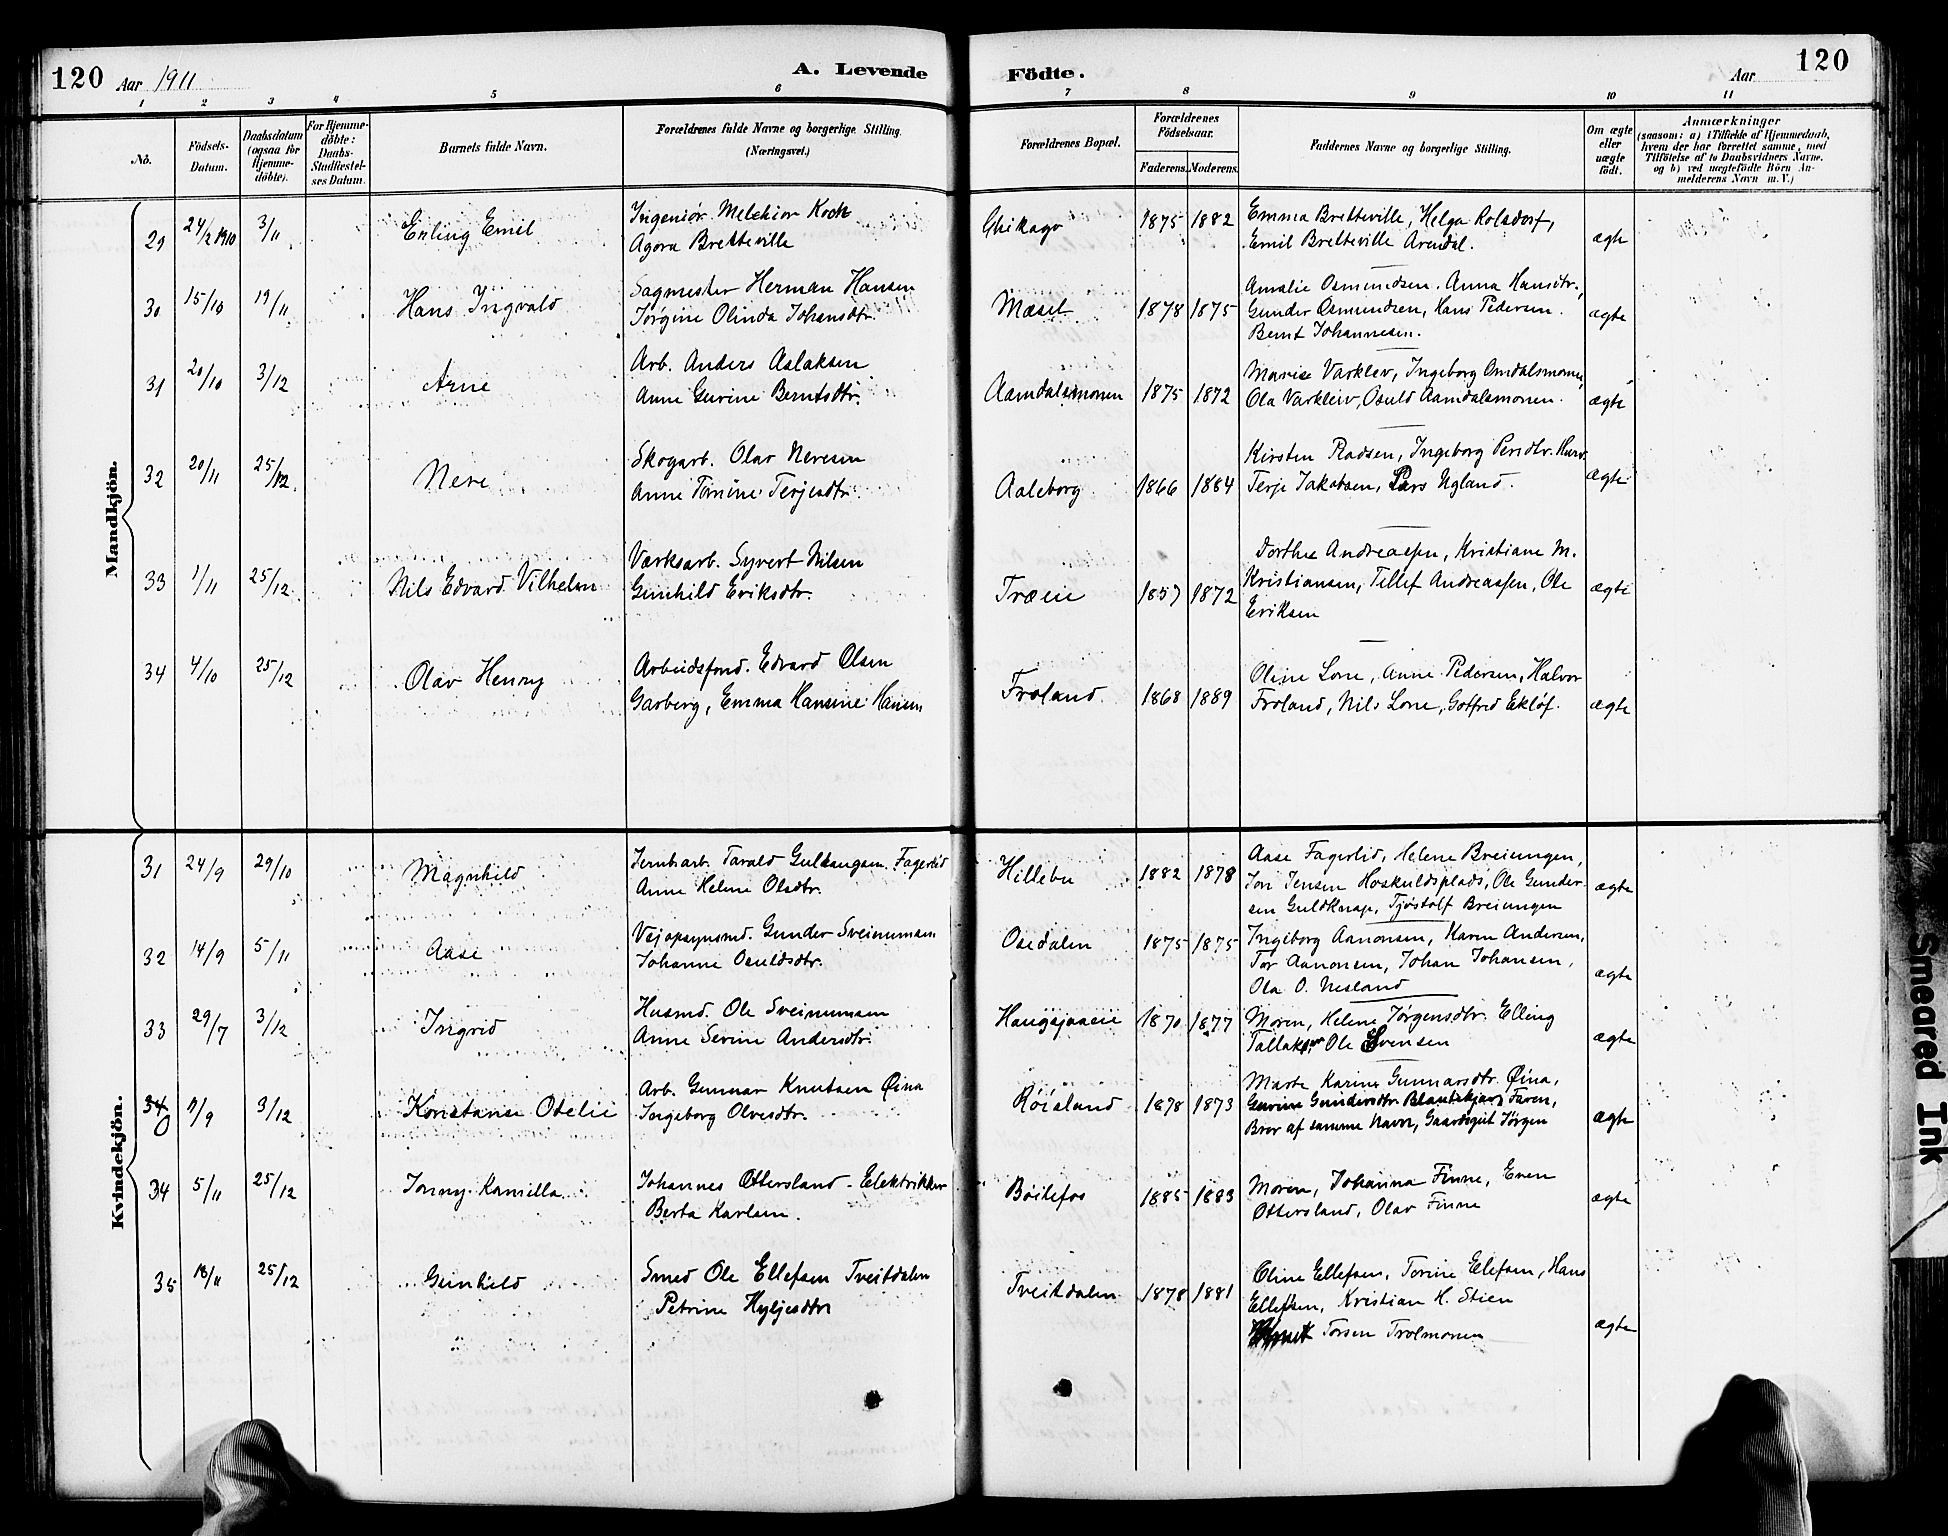 120 Aar 1911 A. Levende Födte. Aar 120
1 2 3 4 5 6 7 8 9 10 11
No. Födsels-Datum. Daabsdatum (ogsaa for Hjemme-döbte). For Hjemme-döbte: Daabs-Stadfæstel-ses Datum. Barnets fulde Navn. Forældrenes fulde Navne og borgerlige Stilling. (Næringsvei.) Forældrenes Bopæl. Forældrenes Födselsaar. Faderens. Moderens. Faddernes Navne og borgerlige Stilling. Om ægte eller uægte födt. Anmærkninger (saasom: a) i Tilfælde af Hjemmedaab, hvem der har forrettet samme, med Tilföielse af to Daabsvidners Navne. og b) ved uægtefödte Börn An-melderens Navn m. V.)
Mandkjön.
29 24/2 1910 3/11 Erling Emil Ingeniør Melchior Koch Chikago 1875 1882 Emma Bretteville, Helga Rolsdorf,
Agora Bretteville Emil Bretteville Arendal. ægte
30 15/10 19/11 Hans Ingvald Sagmester Herman Hansen Mæsel 1878 1875 Amalie Osmundsen. Anna Hansdtr.,
Jørgine Olinda Johansdtr. Gunder Osmundsen, Hans Pedersen. ægte
Bernt Johannesen.
31 20/10 3/12 Arne Arb. Anders Aslaksen Aamdalsmonen 1875 1872 Marie Varklev, Ingeborg Omdalsmonen,
Anne Gurine Berntsdtr. Ola Varkleiv, Osuld Aamdalsmonen. ægte
32 20/11 25/12 Nere Skogarb. Olav Neresen Aaleborg 1866 1884 Kirsten Radsen, Ingeborg
Anne Tomine Terjesdtr. Terje Jakobsen, Lars Ugland. ægte
33 1/11 25/12 Nils Edvard Vilhelm Værksarb. Syvert Nilsen Træie 1857 1872 Dorthe Andreassen, Kristiane M.
Gunhild Eriksdtr. Kristiansen, Tellef Andreassen, Ole ægte
Eriksen
34 4/10 25/12 Olav Henry Arbeidsfmd. Edvard Olsen Froland. 1868 1889 Oline Lone, Anne Pedersen, Halvor
Garberg, Emma Hansine Hansen Froland, Nils Lone, Gotfred Ekløf. ægte
Kvindekjön.
31 24/9 29/10 Magnhild Jernbarb. Tarald Gulkaugsen Fagerlid Hillebu 1882 1878 Aase Fagerlid, Helene Breiungen,
Anne Helene Olsdtr. Jon Jensen Hoskuldsplads, Ole Gunder- ægte
sen Guldknap, Tjøstolf Breiungen
32 14/9 5/11 Aase Vejopsynsmd. Gunder Sveinumsen Osedalen 1875 1875 Ingeborg Aanonsen, Karen Andersen,
Johanne Osuldsdtr. Tor Aanonsen, Johan Johansen, ægte
Ola O. Nesland
33 29/7 3/12 Ingrid Husmd. Ole Sveinumsen Haugsjaaeie 1870 1877 Moren, Helene Jørgensdtr. Elling
Anne Sevine Andersdtr. Tallaksen, Ole Svensen ægte
34 7/9 3/12 Konstanse Otelie Arb. Gunnar Knutsen Øina Røisland 1878 1873 Marte Karine Gunnarsdtr. Øina,
Ingeborg Olvesdtr. Gurine Gundersdtr. Blautekjær, Faren,
Bror af samme Navn, Gaardsgut Jørgen ægte
34 5/11 25/12 Jonny Kamilla Johannes Ottersland - Elektriker Bøilefos 1885 1883 Moren, Johanna Finne, Even
Berta Karlsen. Ottersland, Olav Finne ægte
35 18/11 25/12 Gunhild Smed Ole Ellefsen Tveitdalen Tveitdalen 1878 1881 Oline Ellefsen, Torine Elefsen, Hans
Petrine Ellefsen, Kristian H. Stien
Torsen Trolmonen ægte
Smeared Ink